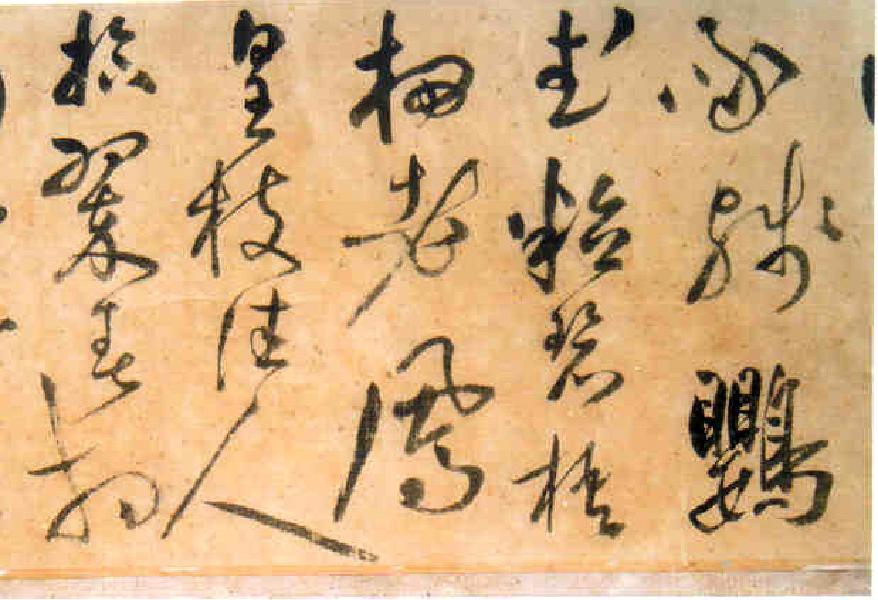 啄殘鸚
武粒碧梧
栖老鳳
皇枝佳人
拾翠春相